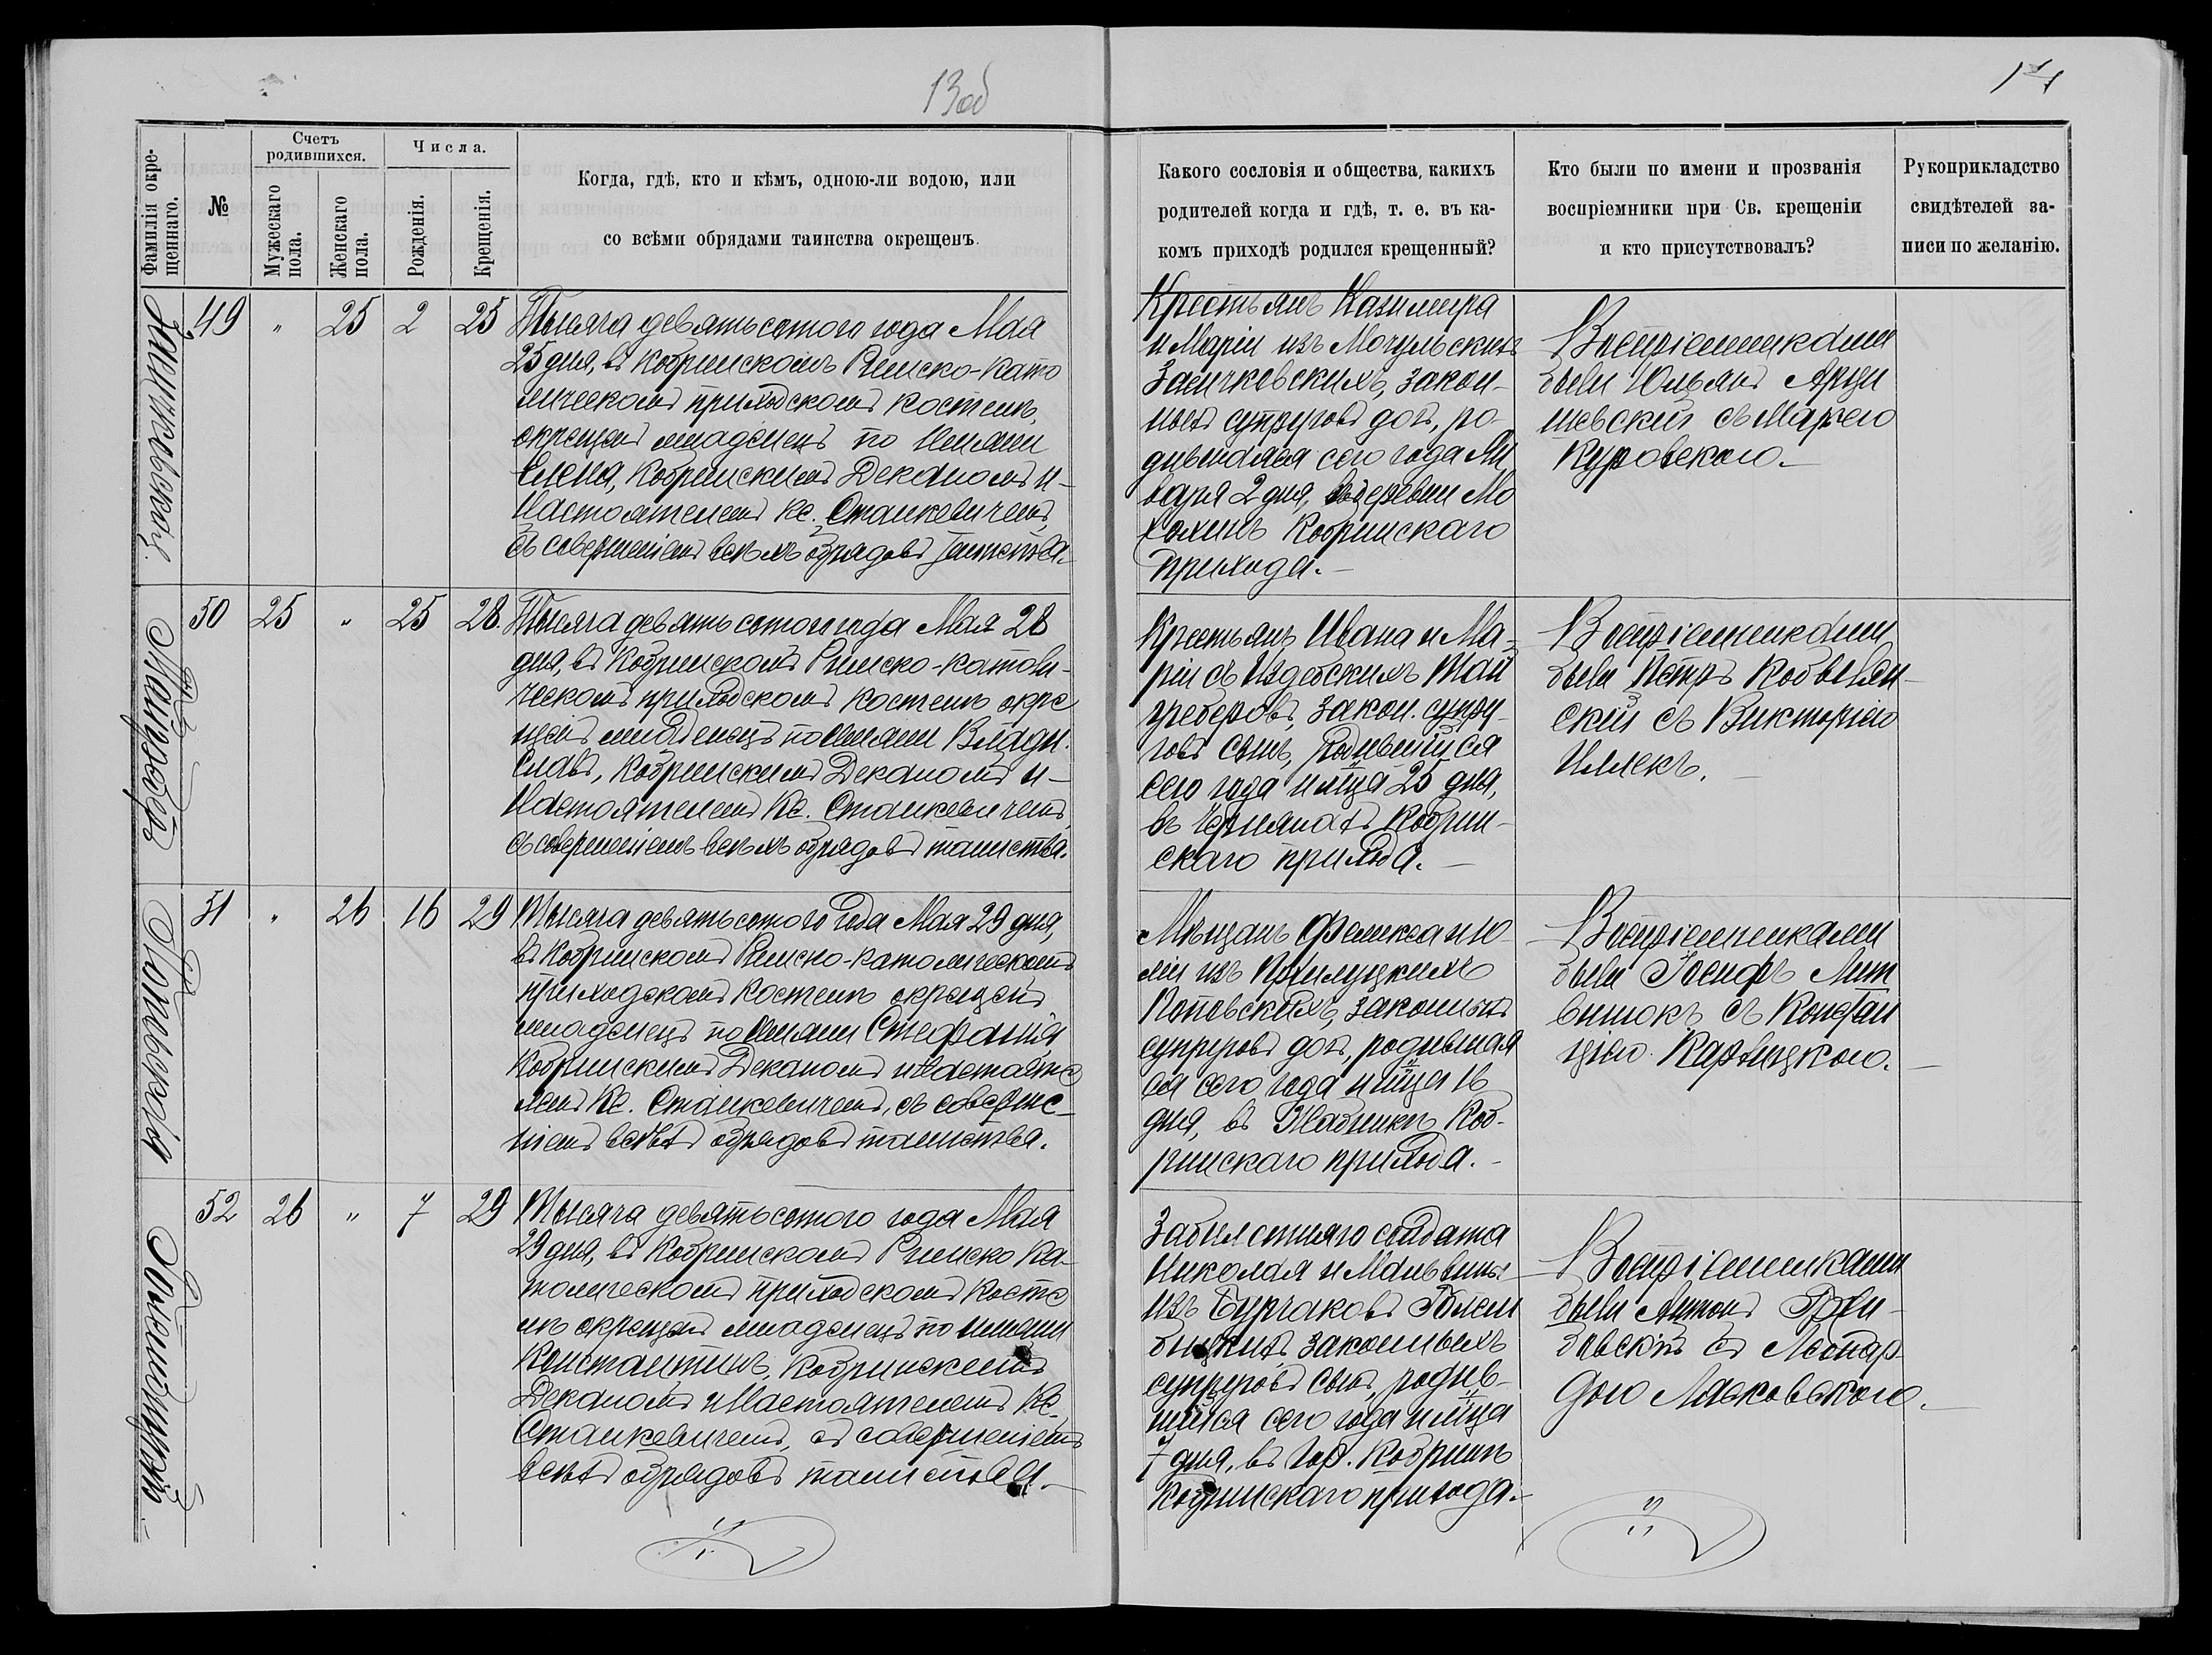 13об
14
Фамилія окре-
щеннаго.
№
Счетъ
родившихся.
Мужескаго
пола.
Женскаго
пола.
Числа.
Рожденія.
Крещенія.
Когда, гдѣ, кто и кѣмъ, одною-ли водою, или
со всѣми обрядами таинства окрещенъ.
Какого сословія и общества, какихъ
родителей когда и гдѣ, т. е. въ ка-
комъ приходѣ родился крещенный?
Кто были по имени и прозванія
воспріемники при Св. крещеніи
и кто присутствовалъ?
Рукоприкладство
свидѣтелей за-
писи по желанію.
49 " 25 2 25
Тысяча девятьсотого года Мая
25 дня, въ Кобринскомъ Римско-Като
лическомъ приходскомъ костелѣ,
окрещенъ младенецъ по имени
Елена, Кобринскимъ Деканомъ и-
Настоятелемъ Кс. Станкевичемъ,
съ совершеніемъ всѣхъ обрядовъ таинства.
Крестьянъ Казимира
и Маріи изъ Мочульскихъ
закон-
ныхъ супруговъ дочь, ро-
дившаяся сего года Ян
варя 2 дня, въ деревни
Кобринскаго
прихода.-
Воспріемниками
были Юльянъ Арци
шевскій съ
Куровскою.-
50 25 " 25 28
Тысяча девятьсотого года Мая 28
дня, въ Кобринскомъ Римско-католи-
ческомъ приходскомъ костелѣ окре
щенъ младенецъ по имени Влади-
славъ, Кобринскимъ Деканомъ и-
Настоятелемъ Кс. Станкевичемъ,
съ совершеніемъ всѣхъ обрядовъ таинства.
Майгреберъ
Крестьянъ Ивана и Ма-
ріи съ Издебскихъ Май
греберовъ, закон. супру-
говъ сынъ, родившійся
сего года и мѣца 25 дня,
въ Кобрин-
скаго прихода.-
Воспріемниками
были Петръ Кобылян-
скій съ Викторіею
51 " 26 16 29
Тысяча девятьсотого года Мая 29 дня,
въ Кобринскомъ Римско-католическомъ
приходскомъ костелѣ окрещенъ
младенецъ по имени Стефанія
Кобринскимъ Деканомъ и Настояте
лемъ Кс. Станкевичемъ, съ соверше-
ніемъ всѣхъ обрядовъ таинства.
Поповская
Мѣщанъ Феликса и Ю-
ліи изъ Прилуцкихъ
Поповскихъ, законныхъ
супруговъ дочь, родившая
ся сего года и мѣца 16
дня, въ Коб-
ринскаго прихода.-
Воспріемниками
были Іосифъ Лит
винюкъ съ Констан
ціею
52 26 " 7 29
Тысяча девятьсотого года Мая
29 дня, въ Кобринскомъ Римско Ка-
толическомъ приходскомъ Косте
лѣ окрещенъ младенецъ по имени
Константинъ, Кобринскимъ
Деканомъ и Настоятелемъ Кс.
Станкевичемъ, съ совершеніемъ
всѣхъ обрядовъ таинства.-
солдата
Николая и Мальвины
изъ Бурчаковъ
законныхъ
супруговъ сынъ, родив-
шійся сего года и мѣца
7 дня, въ гор. Кобринѣ
Кобринскаго прихода.-
Воспріемниками
были Антонъ
съ Леонар-
дою Лясковскою.